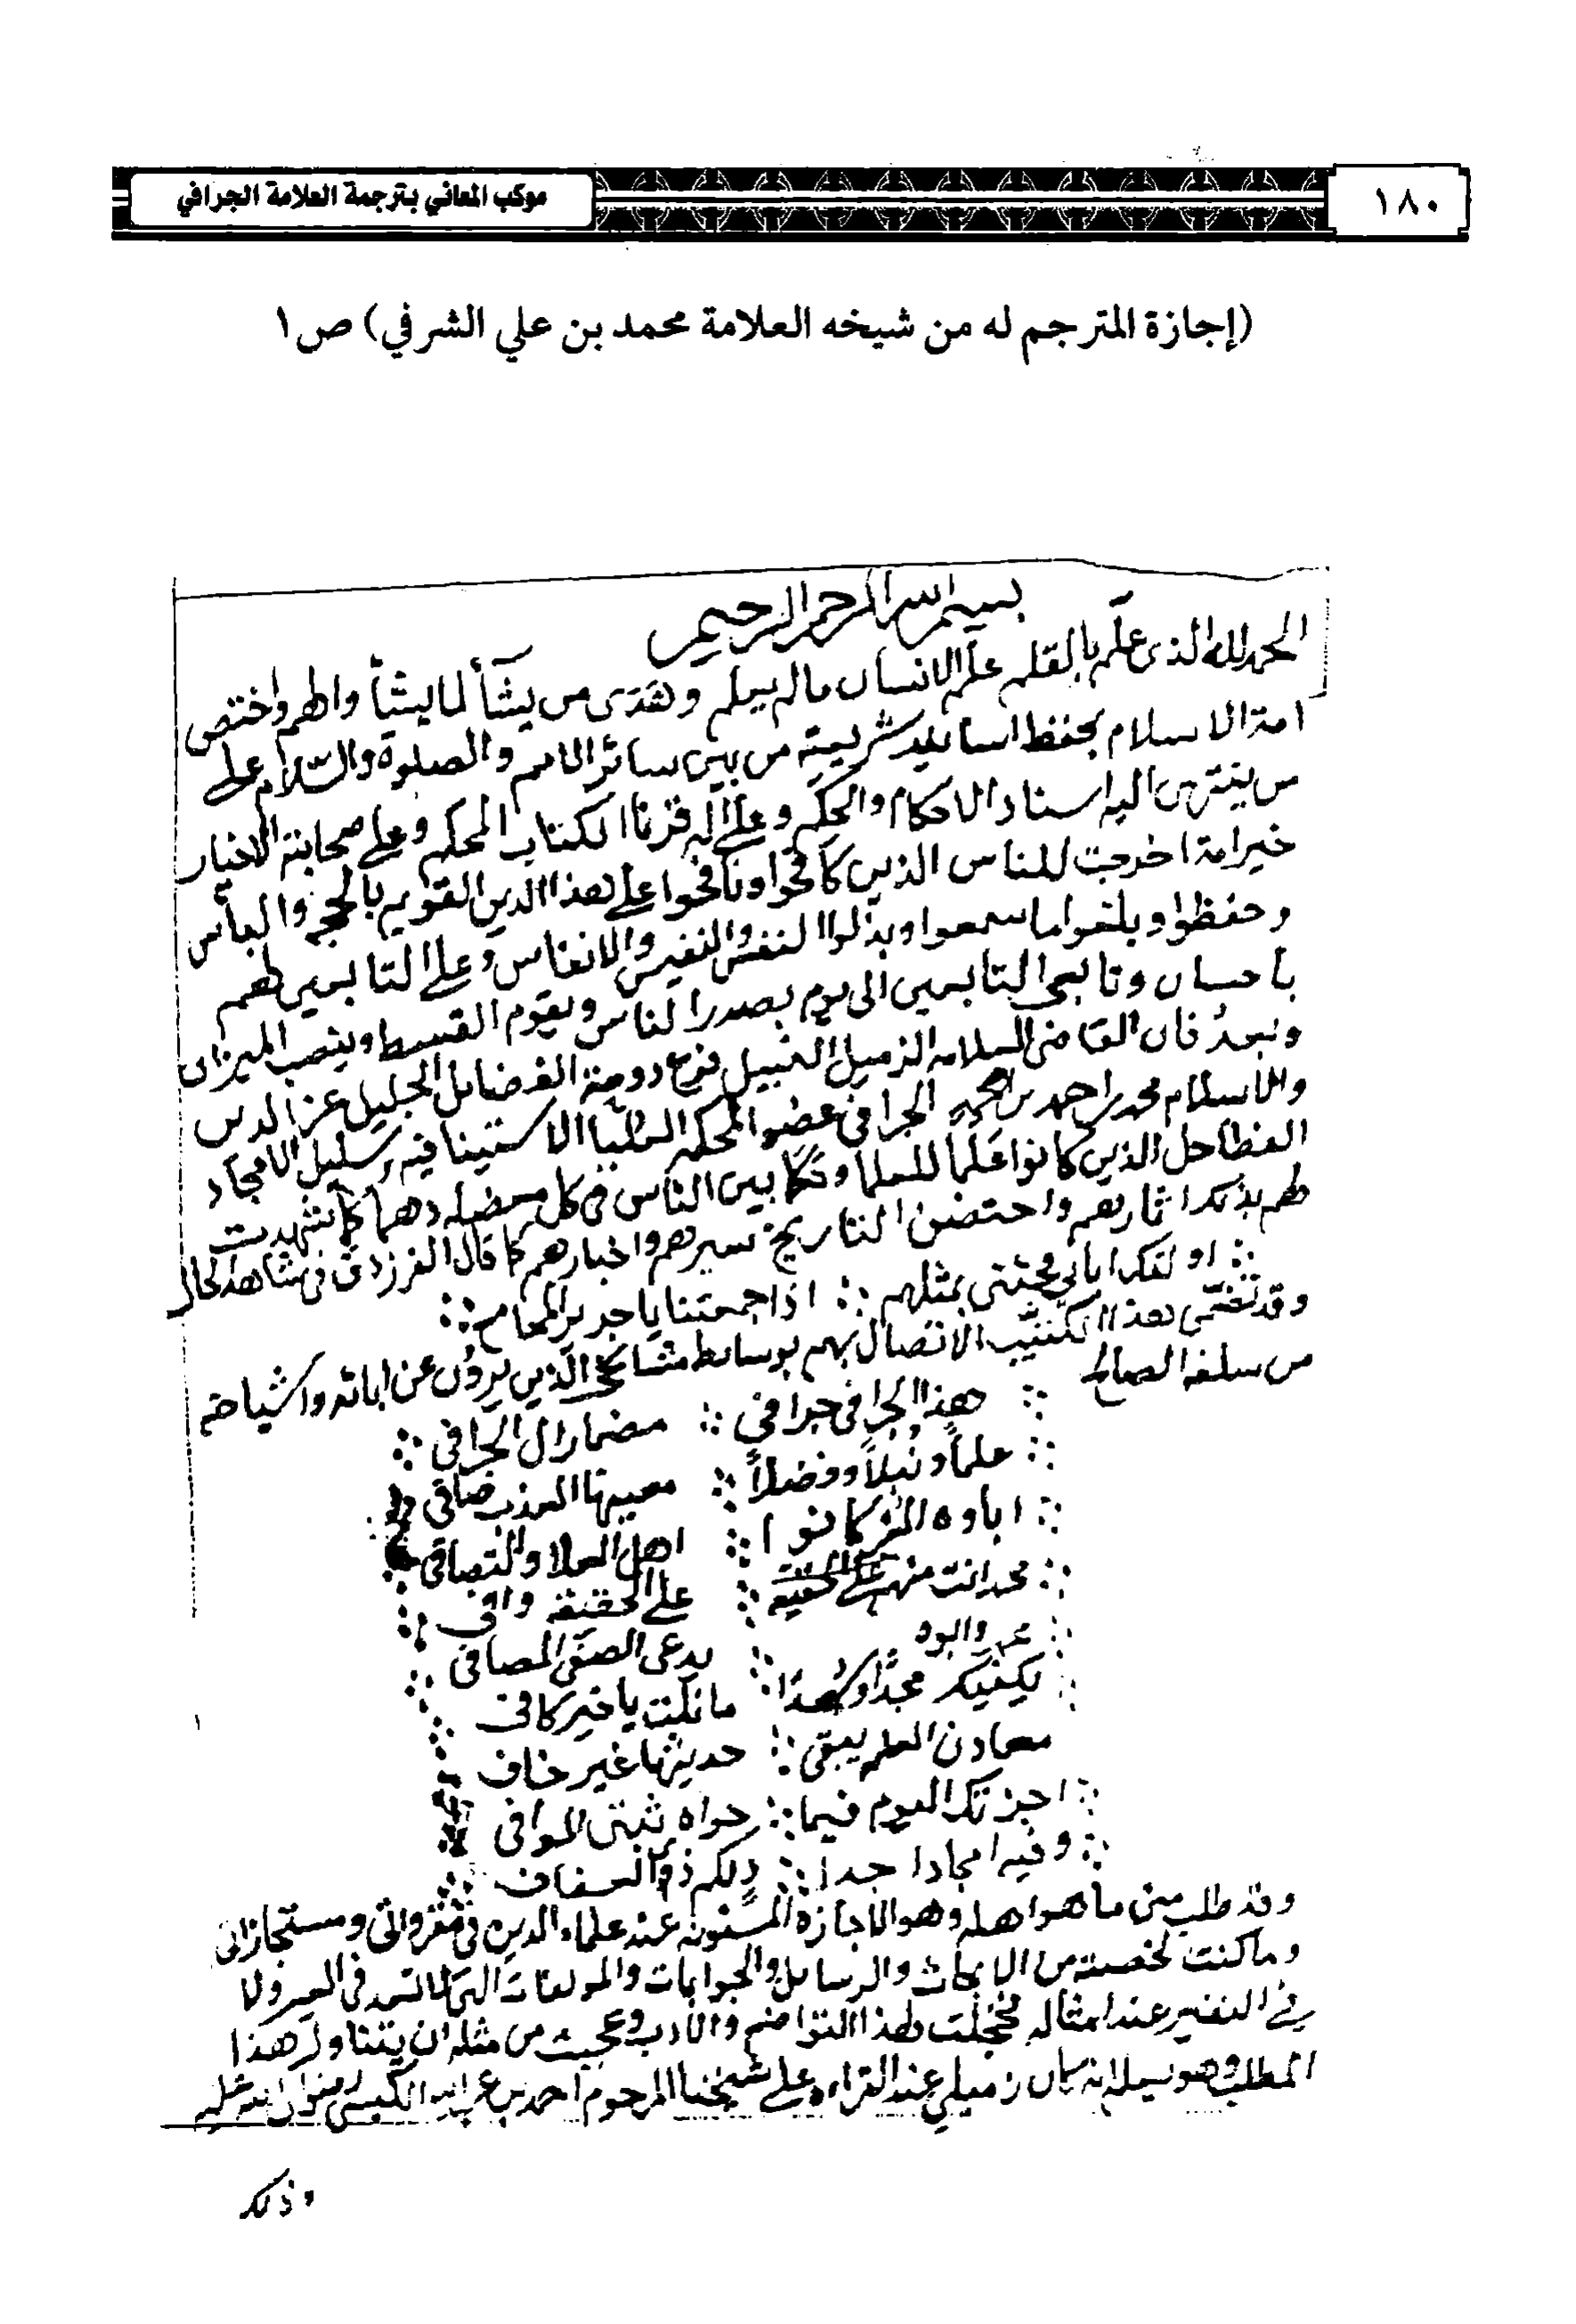 ١٨٠
موكب المعاني بترجمة العلامة الجرافي
(إجازة المترجم له من شيخه العلامة محمد بن علي الشرفي) ص١
بسم الله الرحمن الرحيم
الحمد لله الذي علم بالقلم علم الانسان مالم يعلم وهدى من يشأ لما يشأ والهم واختص
امة الاسلام بحفظ اسانيد شريعته من بين سائر الامم والصلوة والسلام على
من ينتهى اليه اسناد الاحكام والحكم وعلى آله قرنا الكتاب المحكم وعلى صحابته الاخيار
خير امة اخرجت للناس الذين كافحوا ونافحوا على هذا الدين القويم بالحجج والبأس
وحفظوا وبلغوا ما سمعوا وبذلوا النفس والنفيس والانفاس وعلى التابعين لهم
باحسان وتابعي التابعين الى يوم يصدر الناس ويقوم القسط وينصب الميزان
وبعد فان القاضى العلامه الزميل النبيل فرع دوحة الفضائل الجليل عز الدين
والاسلام محمد بن احمد بن محمد الجرافي عضو المحكمه العليا الاستينافيه سليل الامجاد
الفطاحل الذين كانوا علما للعلما وحكما بين الناس في كل معضله دهما كما شهدت
لهم بذلك اثارهم واحتضن التاريخ سيرهم واخبارهم كما قال الفرزدق في مشاهد الحال
اولئك ابائي فجئني بمثلهم ∴ اذا جمعتنا يا جرير المجامع
وقد هذا الاتصال بهم بوسائط مشائخي الذين يروون عن ابائه واشياخه
من سلفه الصالح
هذا الجرافي جرافي ∴ مضمار ال الجرافي
علماً ونبلاً وفضلاً ∴ معينها العذب صافي
اباوه الغر كانوا ∴ اهل العلا والتصافي
محمد انت منهم ∴ على الحقيقه وافي
∴ يدعى الصفى المصافي
يكفيك مجداً وزهداً ∴ ما نلت يا خير كافي
معادن العلم يبقى ∴ حديثها غير خاف
اجزتك اليوم فيما ∴ حواه ثبتى الموافي
وفيه امجاد جداً ∴ ولكم ذوي العفاف
وقد طلب مني ما هو اهله وهو الاجازة المسنونه عند علماء الدين في مقرواتي ومستجازاتي
وما كنت لخصته من الابحاث والرسائل والجوابات والمولفات التي لا تعد في العير ولا
في النفير عند امثاله فخجلت لهذا التواضع والادب وعجبت من مثله ان يتناول هذا
المطلب وهو يعلم انه كان زميلي عند القراءه على شيخنا المرحوم احمد بن عبدالله الكبسي رضوان الله عليه
وذلك